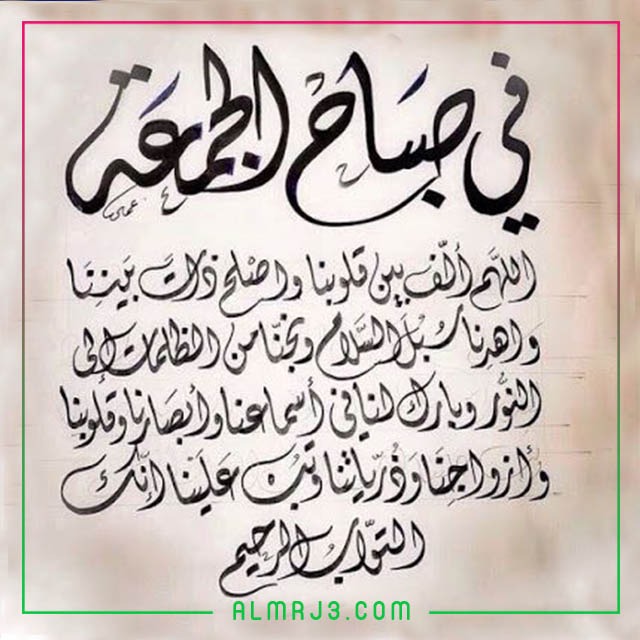 في صباح الجمعة
اللهم ألّف بين قلوبنا واصلح ذات بيننا
واهدنا سُبل السّلام ونجّنا من الظلمات إلى
النّور وبارك لنا في أسماعنا وأبصارنا وقلوبنا
وأزواجنا وذُرّياتنا وتُب علينا إنّك
التوّاب الرحيم
ALMRJ3.COM